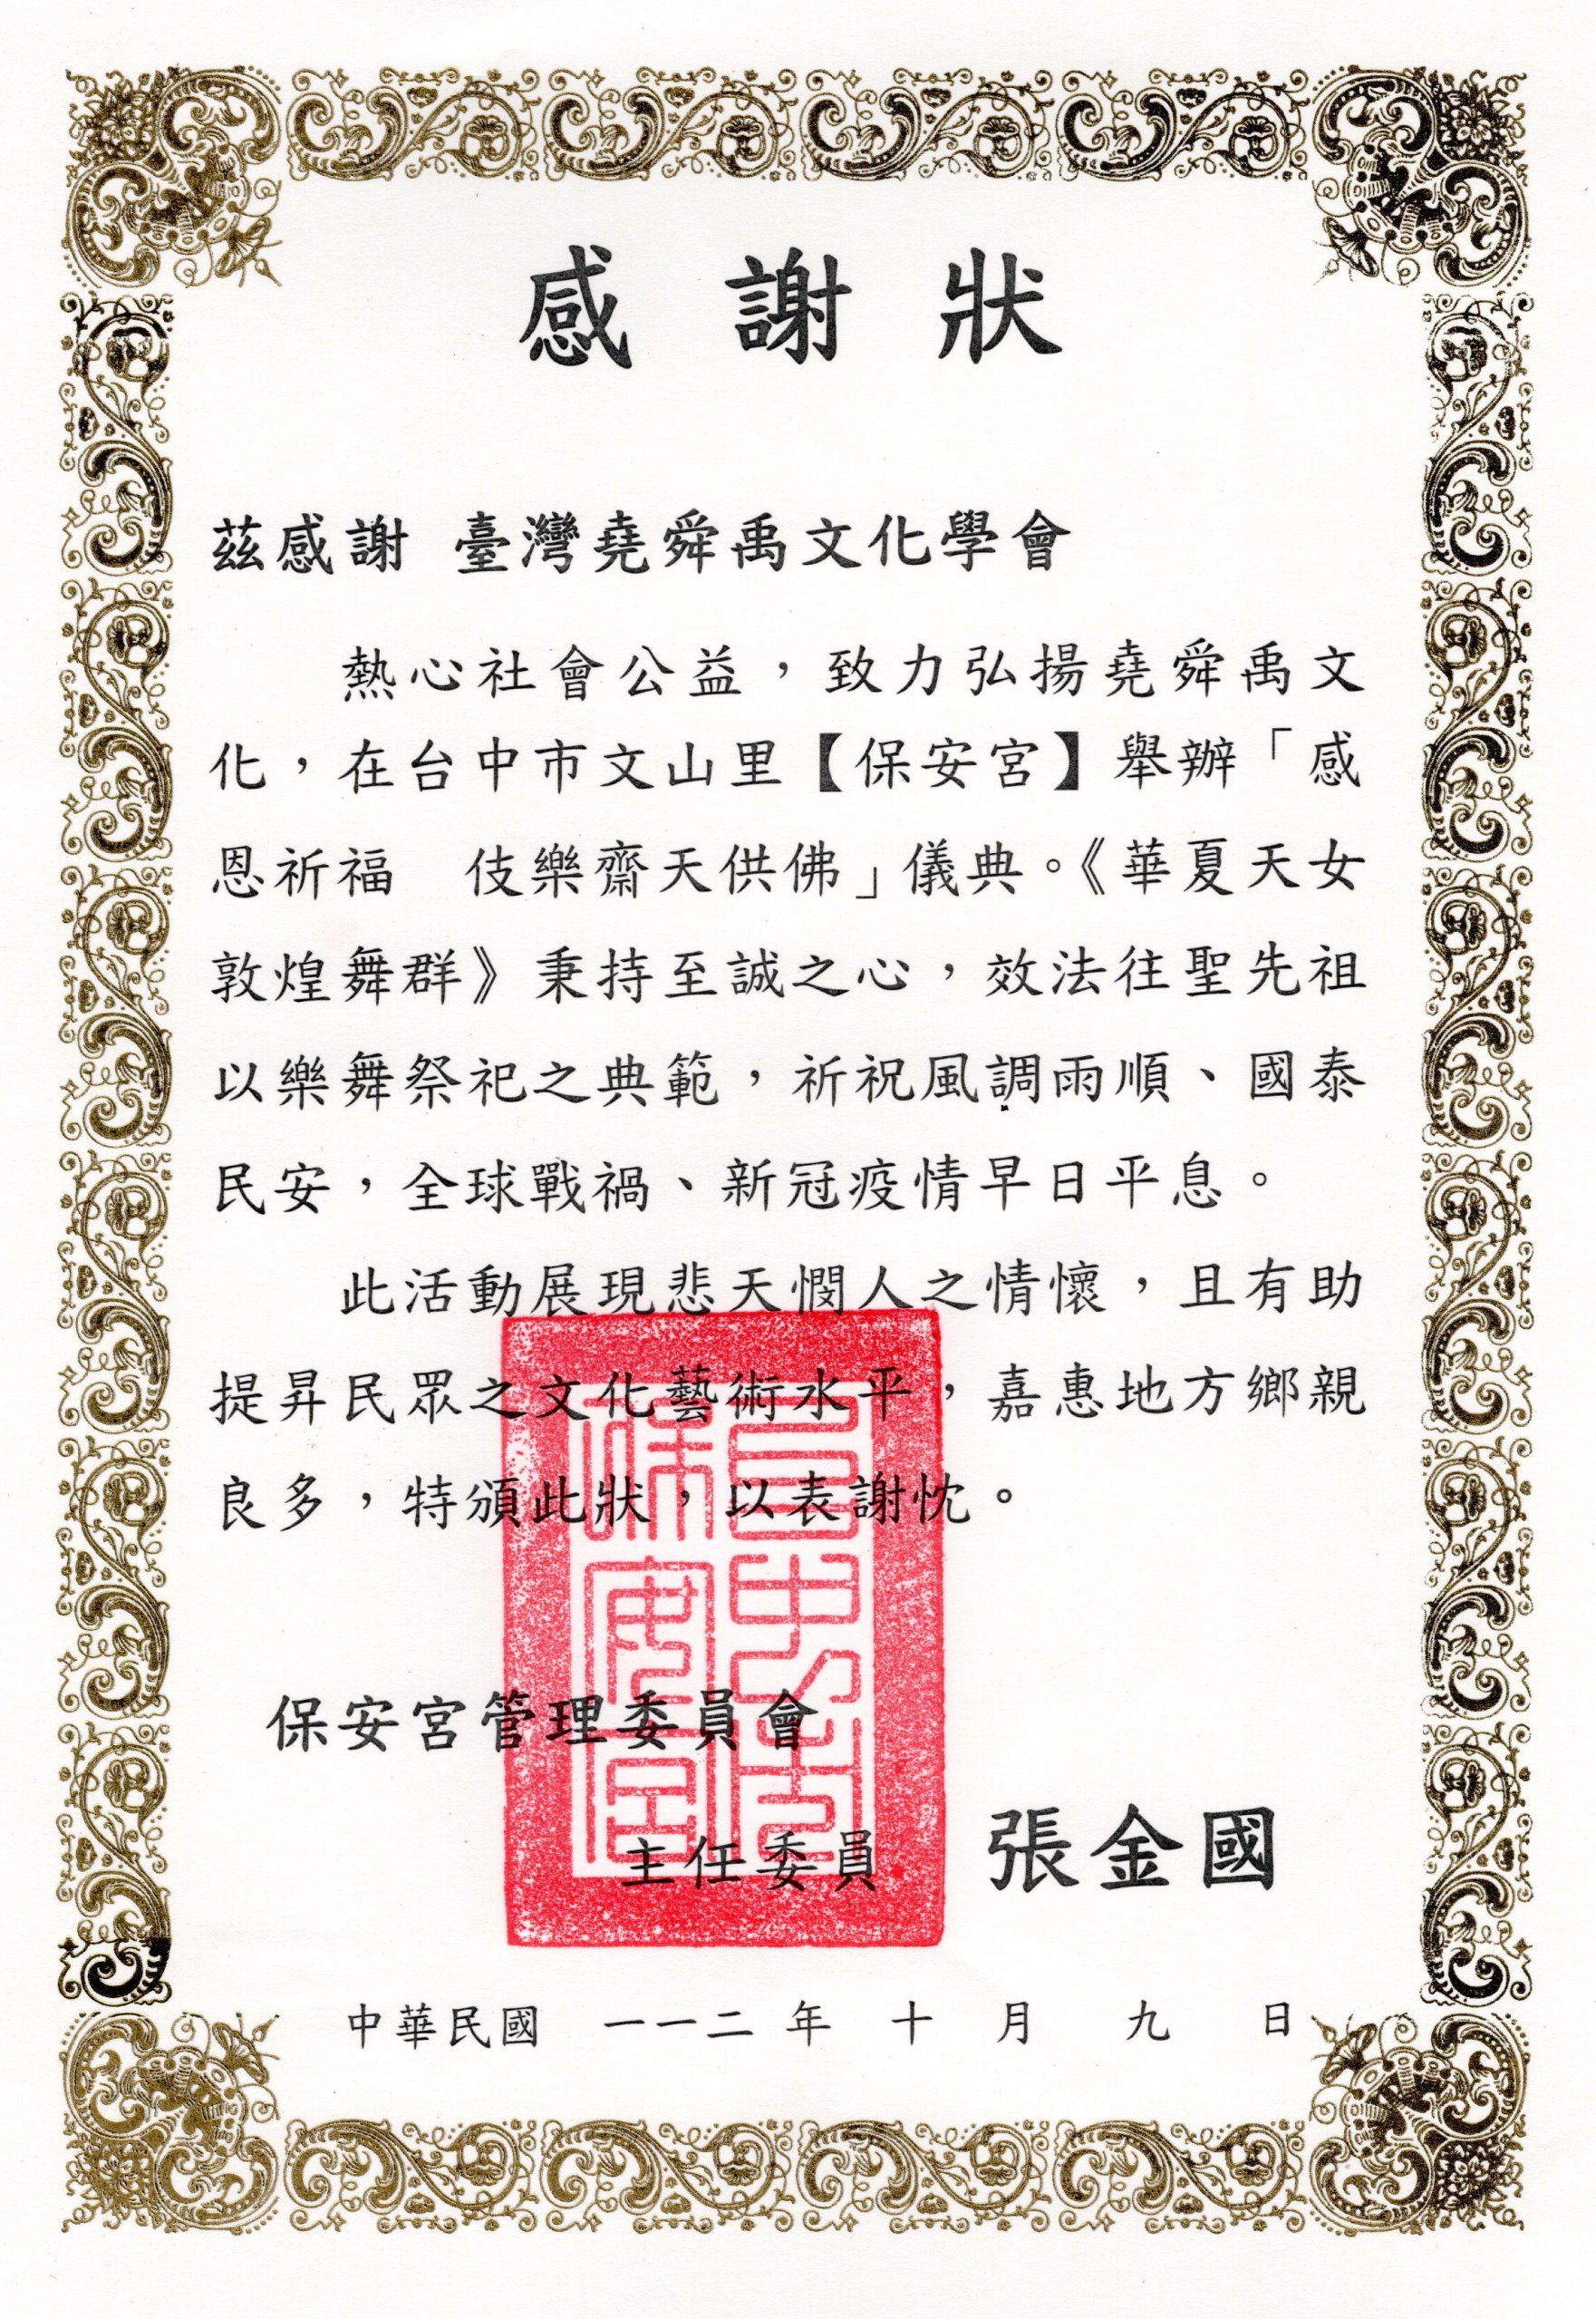 感謝狀
茲感謝 臺灣堯舜禹文化學會
熱心社會公益，致力弘揚堯舜禹文
化，在台中市文山里【保安宮】舉辦「感
恩祈福　伎樂齋天供佛」儀典。《華夏天女
敦煌舞群》秉持至誠之心，效法往聖先祖
以樂舞祭祀之典範，祈祝風調雨順、國泰
民安，全球戰禍、新冠疫情早日平息。
此活動展現悲天憫人之情懷，且有助
提昇民眾之文化藝術水平，嘉惠地方鄉親
良多，特頒此狀，以表謝忱。
台中市
保安宮
保安宮管理委員會
主任委員　張金國
中華民國　一一二年　十月　九日